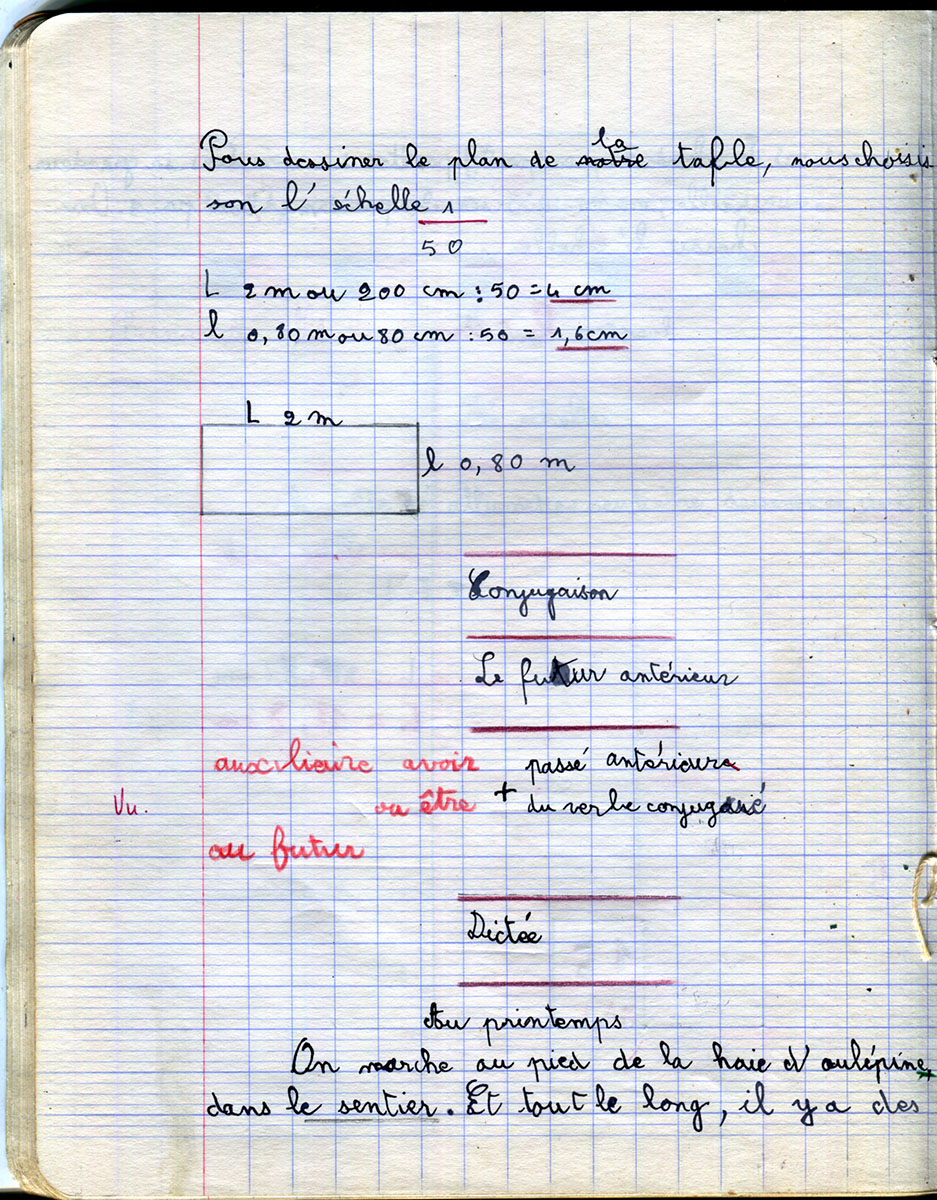 Pour dessiner le plan de ~~notre~~ la table, nous choisis
son l'échelle 1
50
L 2 m ou 200 cm : 50 = 4 cm
l 0,80 m ou 80 cm : 50 = 1,6 cm
L 2 m
l 0,80 m
Conjugaison
Le futur antérieur
auxiliaire avoir passé antérieure
Vu. ou être + du verbe conjugué
au futur
Dictée
Au printemps
On marche au pied de la haie d'aulépine
dans le sentier. Et tout le long, il y a des